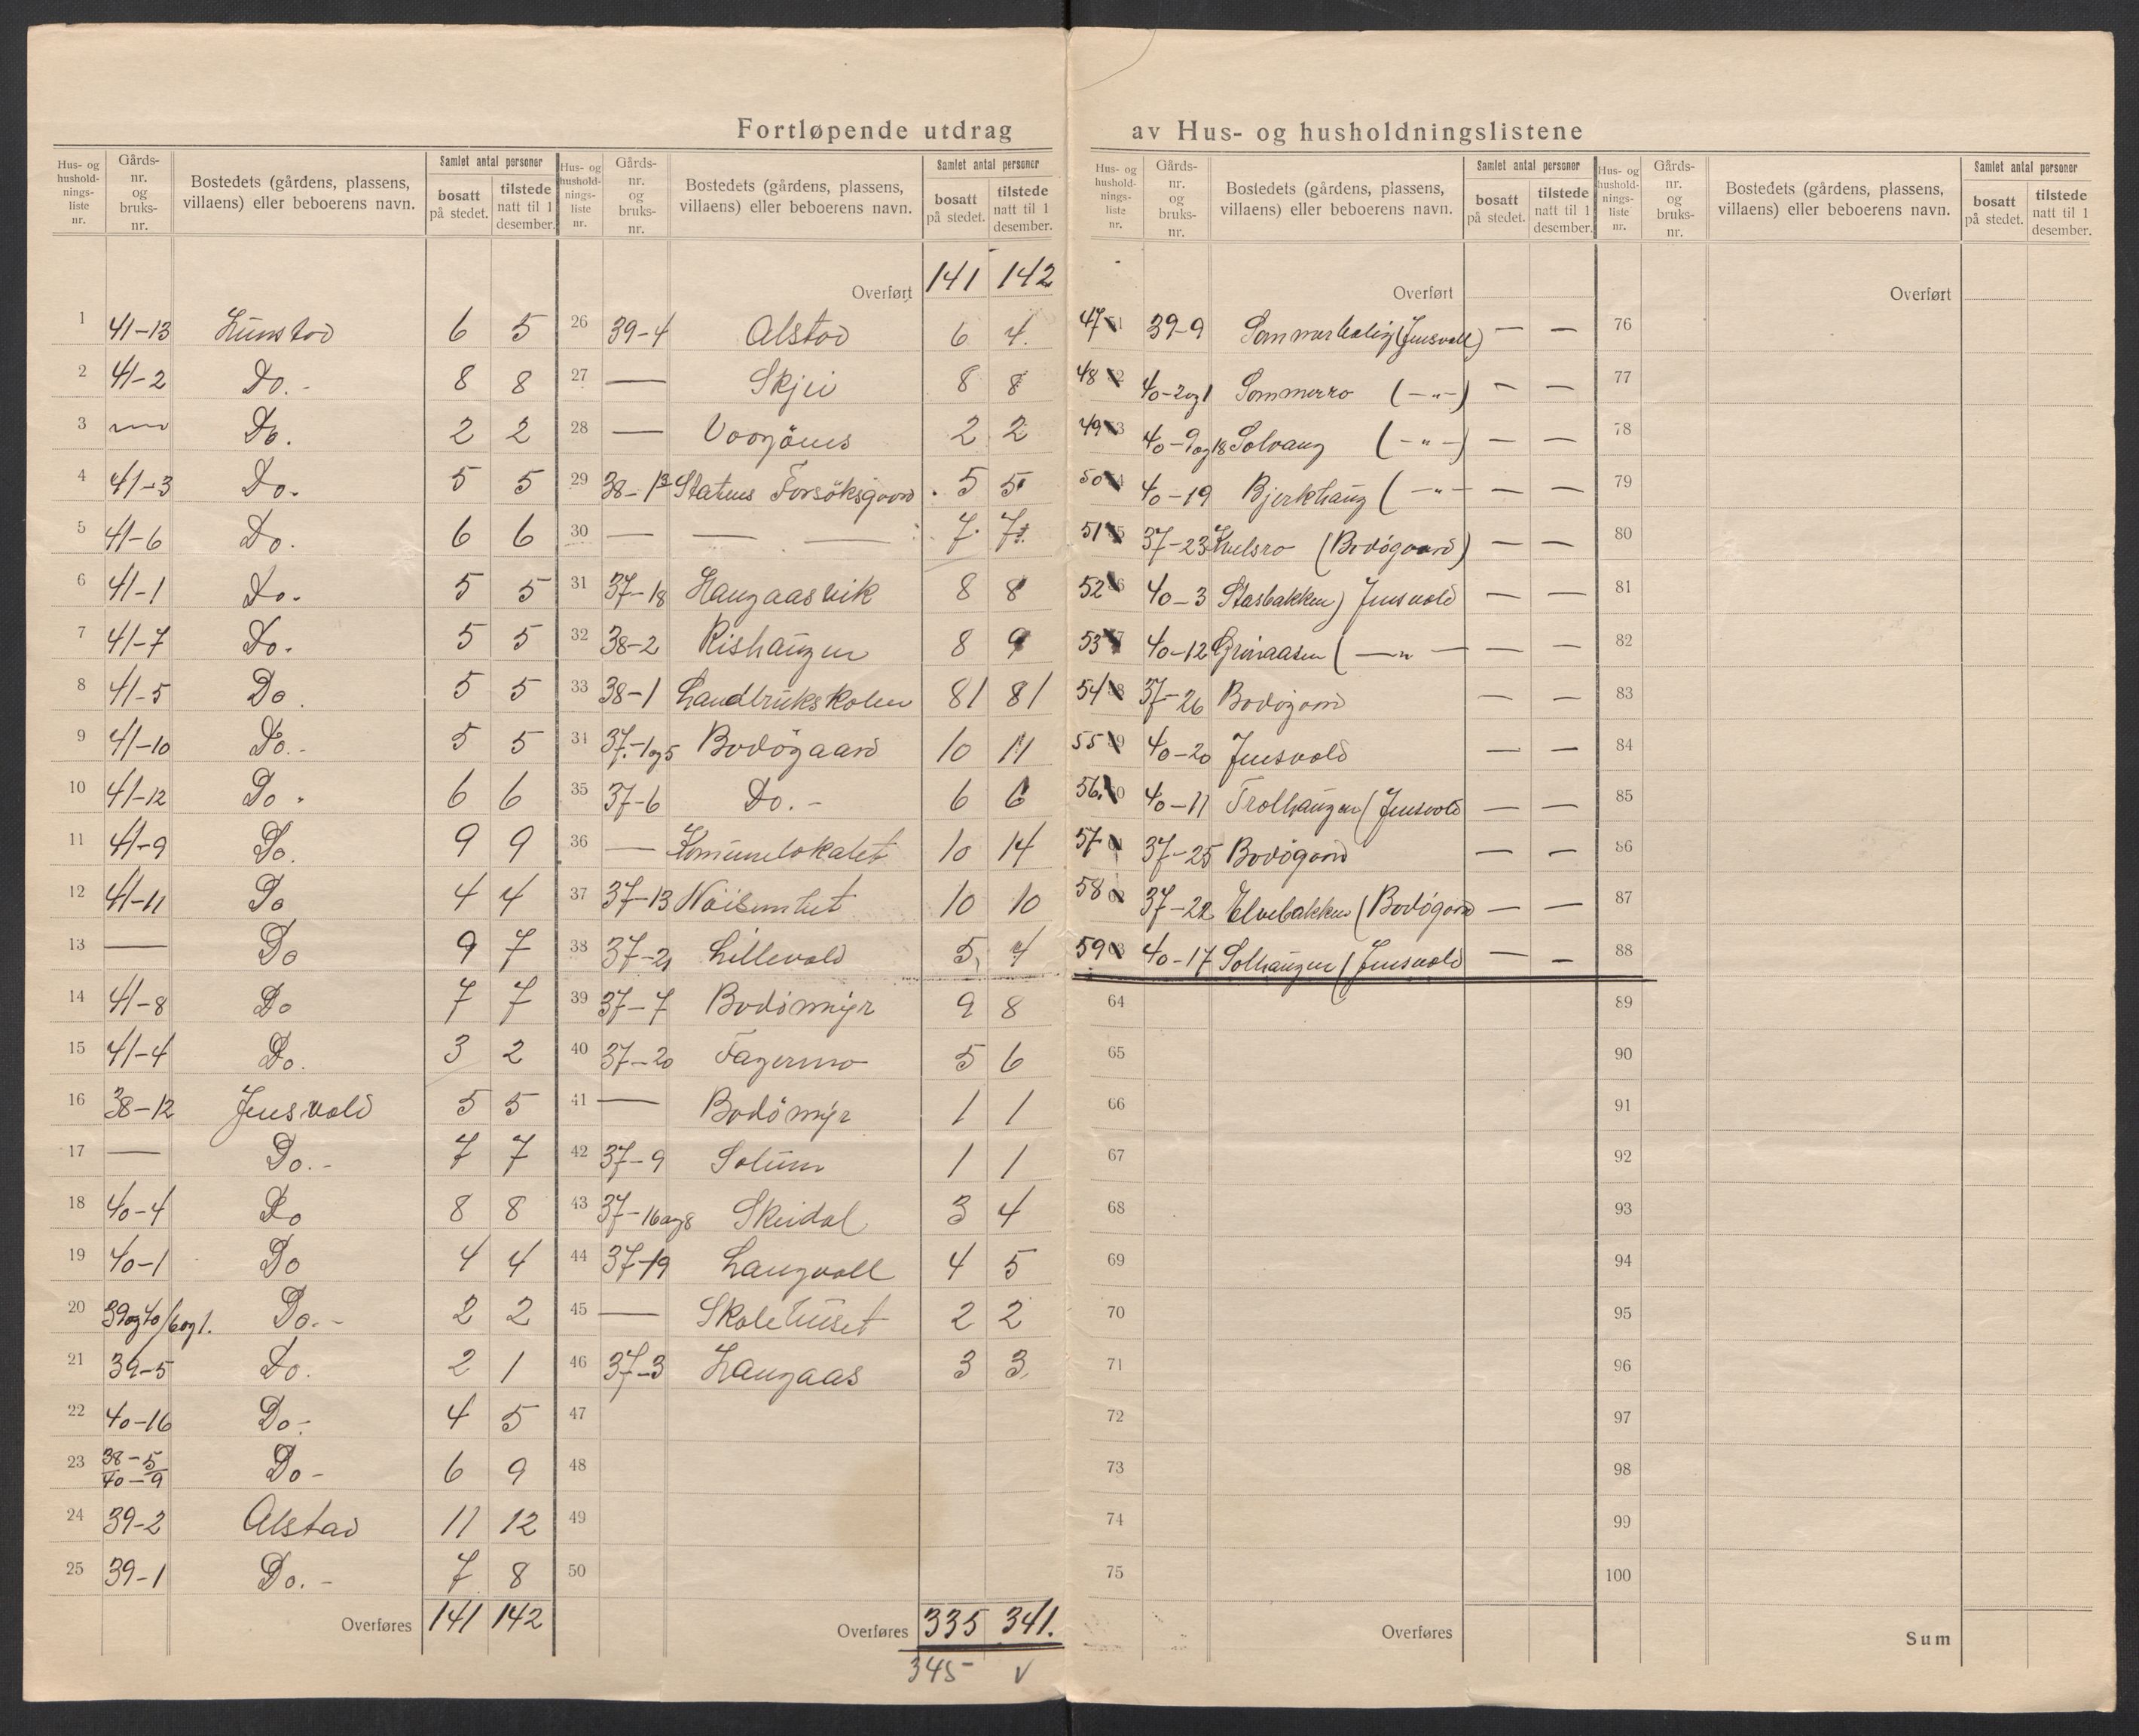 Fortløpende utdrag av Hus- og husholdningslistene
Hus- og hushold-nings-liste nr. Gårds-nr. og bruks-nr. Bostedets (gårdens, plassens, villaens) eller beboerens navn. Samlet antal personer bosatt på stedet. tilstede natt til 1 desember.
1 41-13 Hunstad 6 5
2 41-2 Do.- 8 8
3 — Do. 2 2
4 41-3 Do- 5 5
5 41-6 Do. 6 6
6 41-1 Do- 5 5
7 41-7 Do. 5 5
8 41-5 Do. 5 5
9 41-10 Do.- 5 5
10 41-12 Do. 6 6
11 41-9 Do. 9 9
12 41-11 Do 4 4
13 — Do 9 7
14 41-8 Do 7 7
15 41-4 Do. 3 2
16 38-12 Jensvold 5 5
17 — Do.- 7 7
18 40-4 Do 8 8
19 40-1 Do 4 4
20 39og40/6og1. Do.- 2 2
21 39-5 Do. 2 1
22 40-16 Do- 4 5
23 38-5 40-9 Do- 6 9
24 39-2 Alstad 11 12
25 39-1 Do.- 7 8
Overføres 141 142
Hus- og hushold-nings-liste nr. Gårds-nr. og bruks-nr. Bostedets (gårdens, plassens, villaens) eller beboerens navn. Samlet antal personer bosatt på stedet. tilstede natt til 1 desember.
Overført 141 142
26 39-4 Alstad 6 4.
27 — Skjei 8 8
28 — 2 2
29 38-13 Statens Forsöksgaard. 5 5
30 — — — 7. 7.
31 37-18 Haugaasvik 8 8
32 38-2 Rishaugen 8 9
33 38-1 Landbrukskolen 81 81
34 37-1og5 Bodögaard 10 11
35 37-6 Do.- 6 6
36 — Komunelokalet 10 14
37 37-13 Nöisomhet 10 10
38 37-21 Lillevold 5 4
39 37-7 Bodömyr 9 8
40 37-20 Fagermo 5 6
41 — Bodömyr 1 1
42 37-9 Solum 1 1
43 37-16og8 Skeidal 3 4
44 37-19 Langvoll 4 5
45 — Skolehuset 2 2
46 37-3 Haugaas 3 3
47
48
49
50
Overføres 335 341.
345- v
Hus- og hushold-nings-liste nr. Gårds-nr. og bruks-nr. Bostedets (gårdens, plassens, villaens) eller beboerens navn. Samlet antal personer bosatt på stedet. tilstede natt til 1 desember.
Overført
47 39-9 Sommerbolig (Jensvoll) — —
48 40-2og1 Sommerro (-"-) — —
49 40-9og18 Solvang (-"-) — —
50 40-19 Bjerkhaug (-"- — —
51 37-23 Hulsro (Bodögaard) — —
52 40-3 Stasbakken) Jensvold — —
53 40-12 Grønaasen (-"- — —
54 37-26 Bodögaard — —
55 40-20 Jensvold — —
56. 40-11 Trolhaugen (Jensvold — —
57 37-25 Bodögaard — —
58 37-22 Elvebakken (Bodögaard — —
59 40-17 Solhaugen (Jensvold — —
64
65
66
67
68
69
70
71
72
73
74
75
Overføres
Hus- og hushold-nings-liste nr. Gårds-nr. og bruks-nr. Bostedets (gårdens, plassens, villaens) eller beboerens navn. Samlet antal personer bosatt på stedet. tilstede natt til 1 desember.
Overført
76
77
78
79
80
81
82
83
84
85
86
87
88
89
90
91
92
93
94
95
96
97
98
99
100
Sum